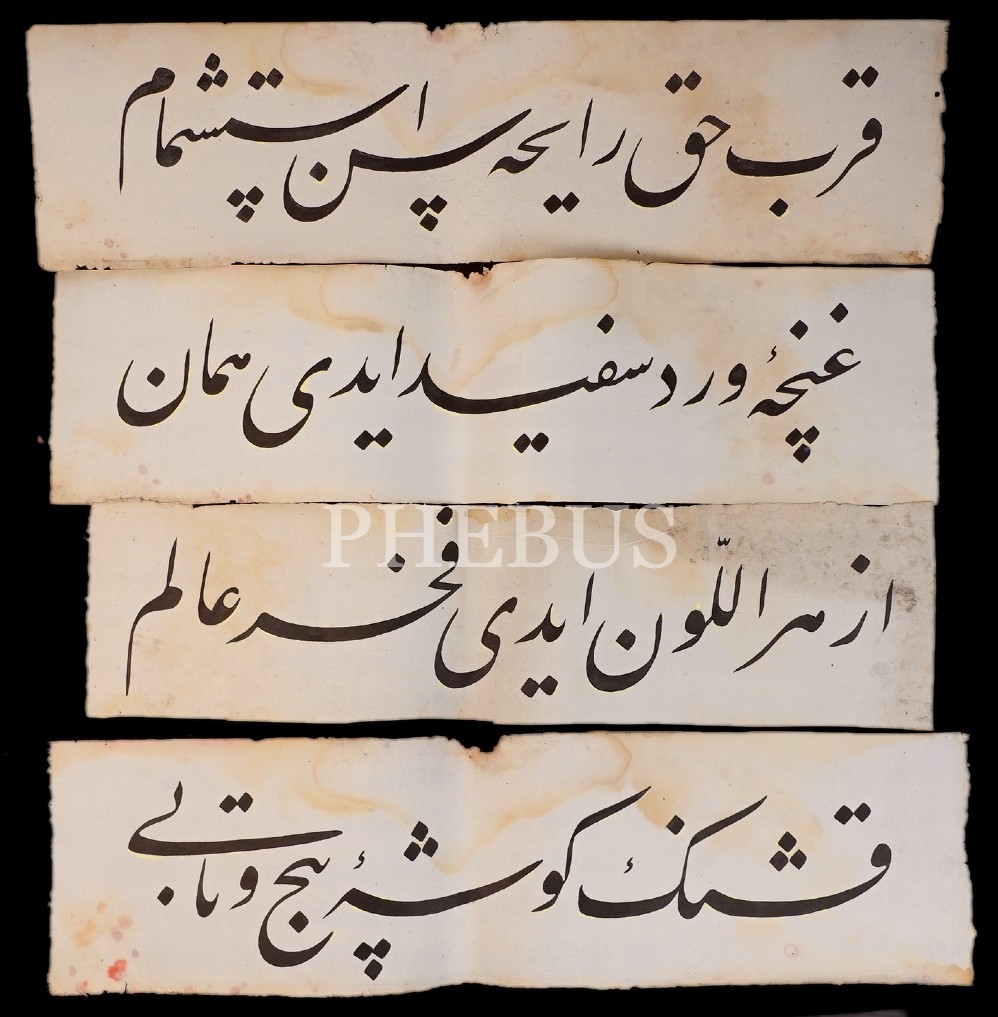 قرب حق رایحه سن استشمام
غنچهٔ ورد سفید ایدی همان
PHEBUS
ازهر اللّون ایدی فخر عالم
قشنک کوشهٔ پیچ و تابی